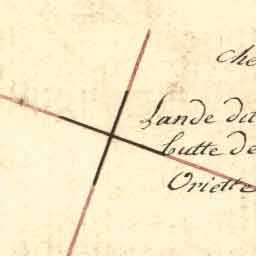 che
Lande du
butte de
Oriette